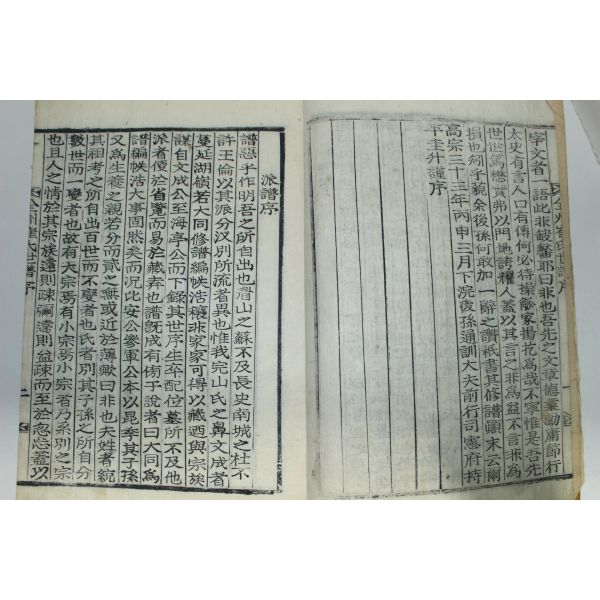 宰文者 語此非皷瞽耶曰非也吾先之文章德業勳庸節行
太史有言人口有傳何必待操觚家揚扢爲哉不寧惟是吾先
世世篤懋實弗以門地誇耀人蓋以其言之非爲益不言非爲
損也矧乎藐余後孫何敢加一辭之讚秖書其修譜顚末云爾
高宗三十三年丙申三月下浣後孫通訓大夫前行司憲府持
平圭升謹序
全州崔氏世譜序
派譜序
譜惡乎作明吾之所自出也眉山之蘇不及長史南城之杜不
許王倫以其派分汊別所流者異也惟我完山氏之鼻文成者
蔓延湖嶺若大同修譜編帙浩穰非家家可得以藏迺與宗族
謀自文成公至海亭公而下錄其世序生卒配位墓所不及他
派者便於省覽而易於藏弆也譜旣成有傍于說者曰大同爲
譜編帙浩大事西黙矣而況比安公參軍公本以昆季其子孫
又爲生養之親若分而貳之無或近於薄歟曰非也夫姓者統
其祖考之所自出百世而不變者也氏者別其子孫之所自分
數世而一變者也故有大宗焉有小宗焉小宗者乃系別之宗
也且人之情於其宗族遠則疎彌遠則益疎而至於忽忘蓋以
全州崔氏世譜序